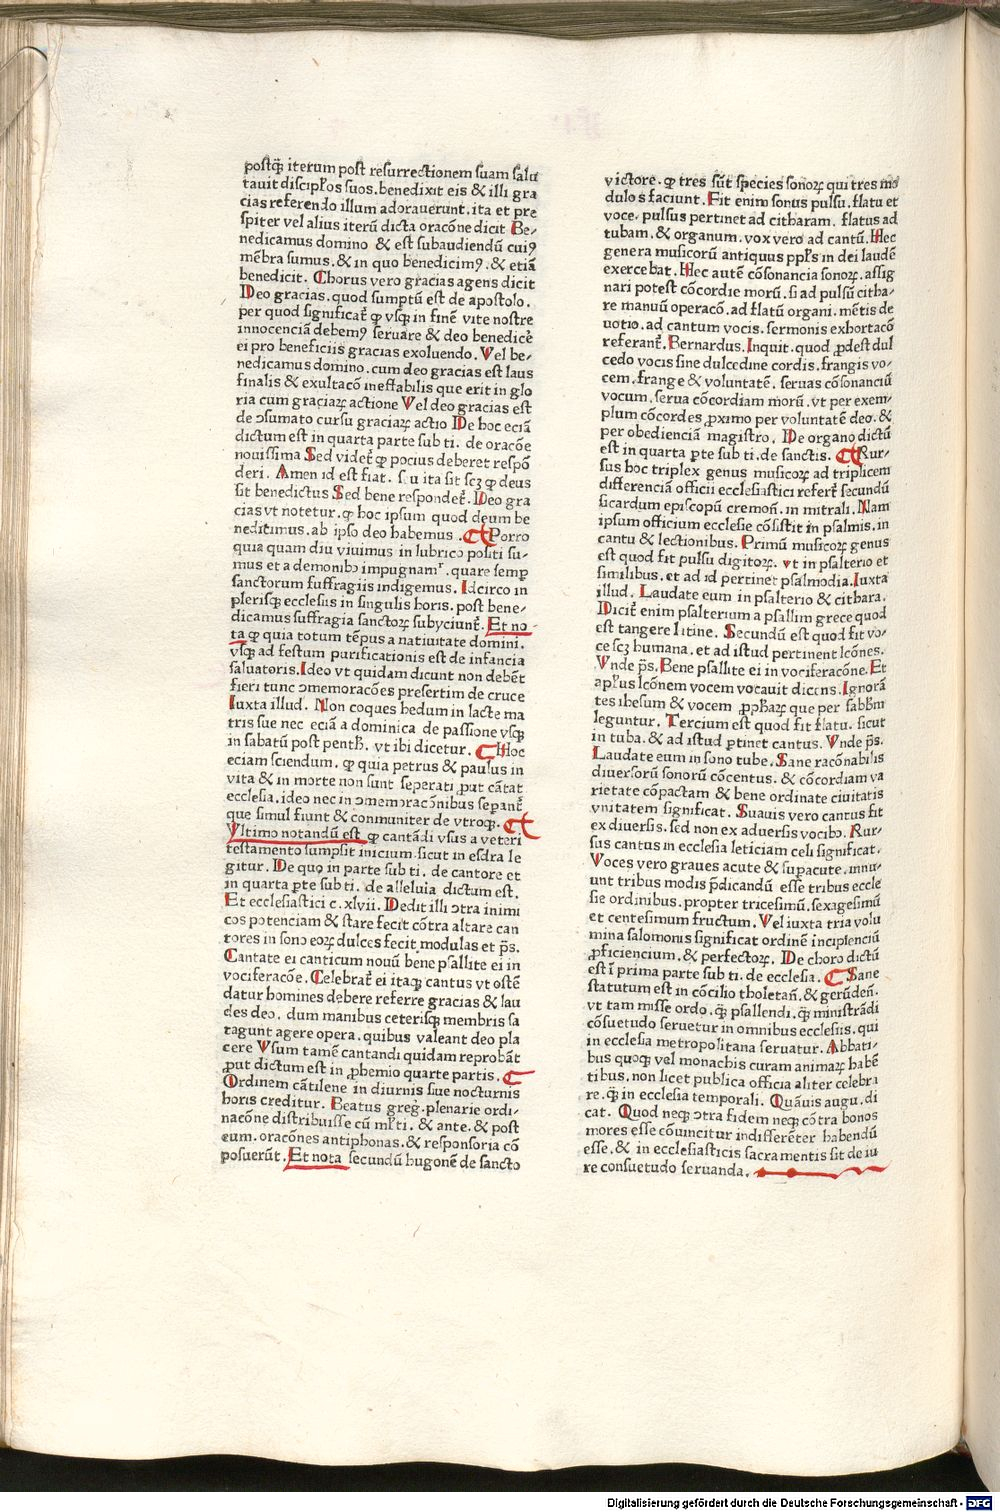 postq̃ iterum post resurrectionem suam salu
tauit discipl'os suos. benedixit eis & illi gra
cias referendo illum adorauerunt. ita et pre
spiter vel alius iterū dicta oracōne dicit Be⸗
nedicamus domino & est subaudiendū cuiꝰ
mēbra sumus. & in quo benedicimꝰ. & etiā
benedicit. Chorus vero gracias agens dicit
Deo gracias. quod sumptū est de apostolo.
per quod significat̃ ꝙ vsqꝫ in finē vite nostre
innocenciā debemꝰ seruare & deo benedicẽ
ei pro beneficiis gracias exoluendo. Vel be⸗
nedicamus domino. cum deo gracias est laus
finalis & exultacō ineffabilis que erit in glo
ria cum graciaꝝ actione Vel deo gracias est
de ɔsumato cursu graciaꝝ actio De hoc eciā
dictum est in quarta parte sub ti. de oracōe
nouissima Sed videt̃ ꝙ pocius deberet respō
deri. Amen id est fiat. s̄ u ita sit scꝫ ꝙ deus
sit benedictus Sed bene respondet̃. Deo gra
cias vt notetur. ꝙ hoc ipsum quod deum be
nedicimus. ab ipso deo habemus . Porro
quia quam diu viuimus in lubrico positi su⸗
mus et a demonibꝰ impugnamʳ. quare semꝑ
sanctorum suffragiis indigemus. Idcirco in
plerisqꝫ ecclesiis in singulis horis. post bene⸗
dicamus suffragia sanctoꝝ subyciunt̃. Et no⸗
ta ꝙ quia totum tēpus a natiuitate domini.
vsqꝫ ad festum purificationis est de infancia
saluatoris. Ideo vt quidam dicunt non debēt
fieri tunc ɔmemoracōes presertim de cruce
Iuxta illud. Non coques hedum in lacte ma
tris sue nec eciā a dominica de passione vsqꝫ
in sabatū post pentħ. vt ibi dicetur. Hoc
eciam sciendum. ꝙ quia petrus & paulus in
vita & in morte non sunt seperati ꝓut cātat
ecclesia. ideo nec in ɔmemoracōnibus seꝑant̃
que simul fiunt & conmuniter de vtroqꝫ.
Vltimo notandū est ꝙ cantādi vsus a veteri
testamento sumpsit inicium. sicut in esdra le
gitur. De quo in parte sub ti. de cantore et
in quarta ꝑte sub ti. de alleluia dictum est.
Et ecclesiastici c. xlvii. Dedit illi ɔtra inimi
cos potenciam & stare fecit cōtra altare can
tores in sono eoꝝ dulces fecit modulas et p̄s.
Cantate ei canticum nouū bene psallite ei in
vociferacōe. Celebrat̃ ei itaqꝫ cantus vt ostē
datur homines debere referre gracias & lau
des deo. dum manibus ceterisqꝫ membris sa
tagunt agere opera. quibus valeant deo pla
cere Vsum tamē cantandi quidam reprobāt
ꝓut dictum est in ꝓhemio quarte partis.
Ordinem cātilene in diurnis siue nocturnis
horis creditur. Beatus greg̃. plenarie ordi⸗
nacōne distribuisse cū ml'ti. & ante. & post
eum. oracōnes antiphonas. & responsoria cō
posuerūt. Et nota secundū hugonē de sancto
victore. ꝙ tres sūt species sonoꝝ qui tres mo
dulos faciunt. Fit enim sonus pulsu. flatu et
voce. pulsus pertinet ad citharam. flatus ad
tubam. & organum. vox vero ad cantū. Hec
genera musicorū antiquus ppl's in dei laudē
exercebat. Hec autē cōsonancia sonoꝝ. assig
nari potest cōcordie morū. si ad pulsū citha⸗
re manuū operacō. ad flatū organi. mētis de
uotio. ad cantum vocis. sermonis exhortacō
referant̃. Bernardus. Inquit. quod ꝓdest dul
cedo vocis sine dulcedine cordis. frangis vo⸗
cem. frange & voluntatē. seruas cōsonanciū
vocum. serua cōcordiam morū. vt per exem⸗
plum cōcordes ꝓximo per voluntatē deo. &
per obedienciā magistro. De organo dictū
est in quarta ꝑte sub ti. de sanctis. Rur⸗
sus hoc triplex genus musicoꝝ ad triplicem
differenciā officii ecclesiastici refert̃ secundū
sicardum episcopū cremoñ. in mitrali. Nam
ipsum officium ecclesie cōsistit in psalmis. in
cantu & lectionibus. Primū musicoꝝ genus
est quod fit pulsu digitoꝝ. vt in psalterio et
similibus. et ad id pertinet psalmodia. Iuxta
illud. Laudate eum in psalterio & cithara.
Dicit̃ enim psalterium a psallim grece quod
est tangere latine. Secundū est quod fit vo⸗
ce scꝫ humana. et ad istud pertinent lcōnes.
Vnde p̄s. Bene psallite ei in vociferacōne. Et
apl'us lcōnem vocem vocauit dicens. Ignorā
tes ihesum & vocem ꝓpħaꝝ que per sabb̄m
leguntur. Tercium est quod fit flatu. sicut
in tuba. & ad istud ꝑtinet cantus. Vnde p̄s.
Laudate eum in sono tube. Sane racōnabilis
diuersorū sonorū cōcentus. & cōcordiam va
rietate cōpactam & bene ordinate ciuitatis
vnitatem significat. Suauis vero cantus fit
ex diuersis. sed non ex aduersis vocibꝰ. Rur⸗
sus cantus in ecclesia leticiam celi significat.
Voces vero graues acute & supacute. innu⸗
unt tribus modis p̄dicandū esse tribus eccle
sie ordinibus. propter tricesimū. sexagesimū
et centesimum fructum. Vel iuxta tria volu
mina salomonis significat ordinē incipienciū
ꝓficiencium. & perfectoꝝ. De choro dictū
est ī prima parte sub ti. de ecclesia. Sane
statutum est in cōcilio tholetañ. & gerūdeñ.
vt tam misse ordo. q̄ psallendi. q̄ ministrādi
cōsuetudo seruetur in omnibus ecclesiis. qui
in ecclesia metropolitana seruatur. Abbati⸗
bus quoqꝫ vel monachis curam animaꝝ habē
tibus. non licet publica officia aliter celebra
re. q̄ in ecclesia temporali. Quāuis augu. di
cat. Quod neqꝫ ɔtra fidem neqꝫ cōtra bonos
mores esse cōuincitur indifferēter habendū
esse. & in ecclesiasticis sacramentis sit de iu
re consuetudo seruanda.
Digitalisierung gefördert durch die Deutsche Forschungsgemeinschaft - DFG